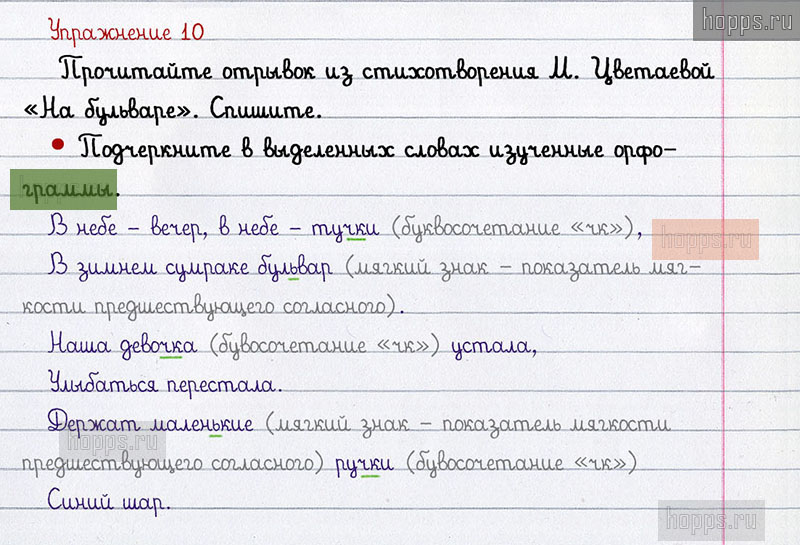 hopps.ru
Упражнение 10
Прочитайте отрывок из стихотворения М. Цветаевой
«На бульваре». Спишите.
• Подчеркните в выделенных словах изученные орфо-
граммы.
В небе – вечер, в небе – тучки (буквосочетание «чк»),
hopps.ru
В зимнем сумраке бульвар (мягкий знак – показатель мяг-
кости предшествующего согласного).
Наша девочка (бувосочетание «чк») устала,
Улыбаться перестала.
Держат маленькие (мягкий знак – показатель мягкости
hopps.ru
предшествующего согласного) ручки (бувосочетание «чк»)
Синий шар.
hopps.ru